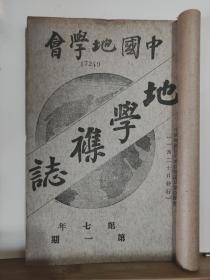 中國地學會
17249
地學襍誌
第七年
第一期